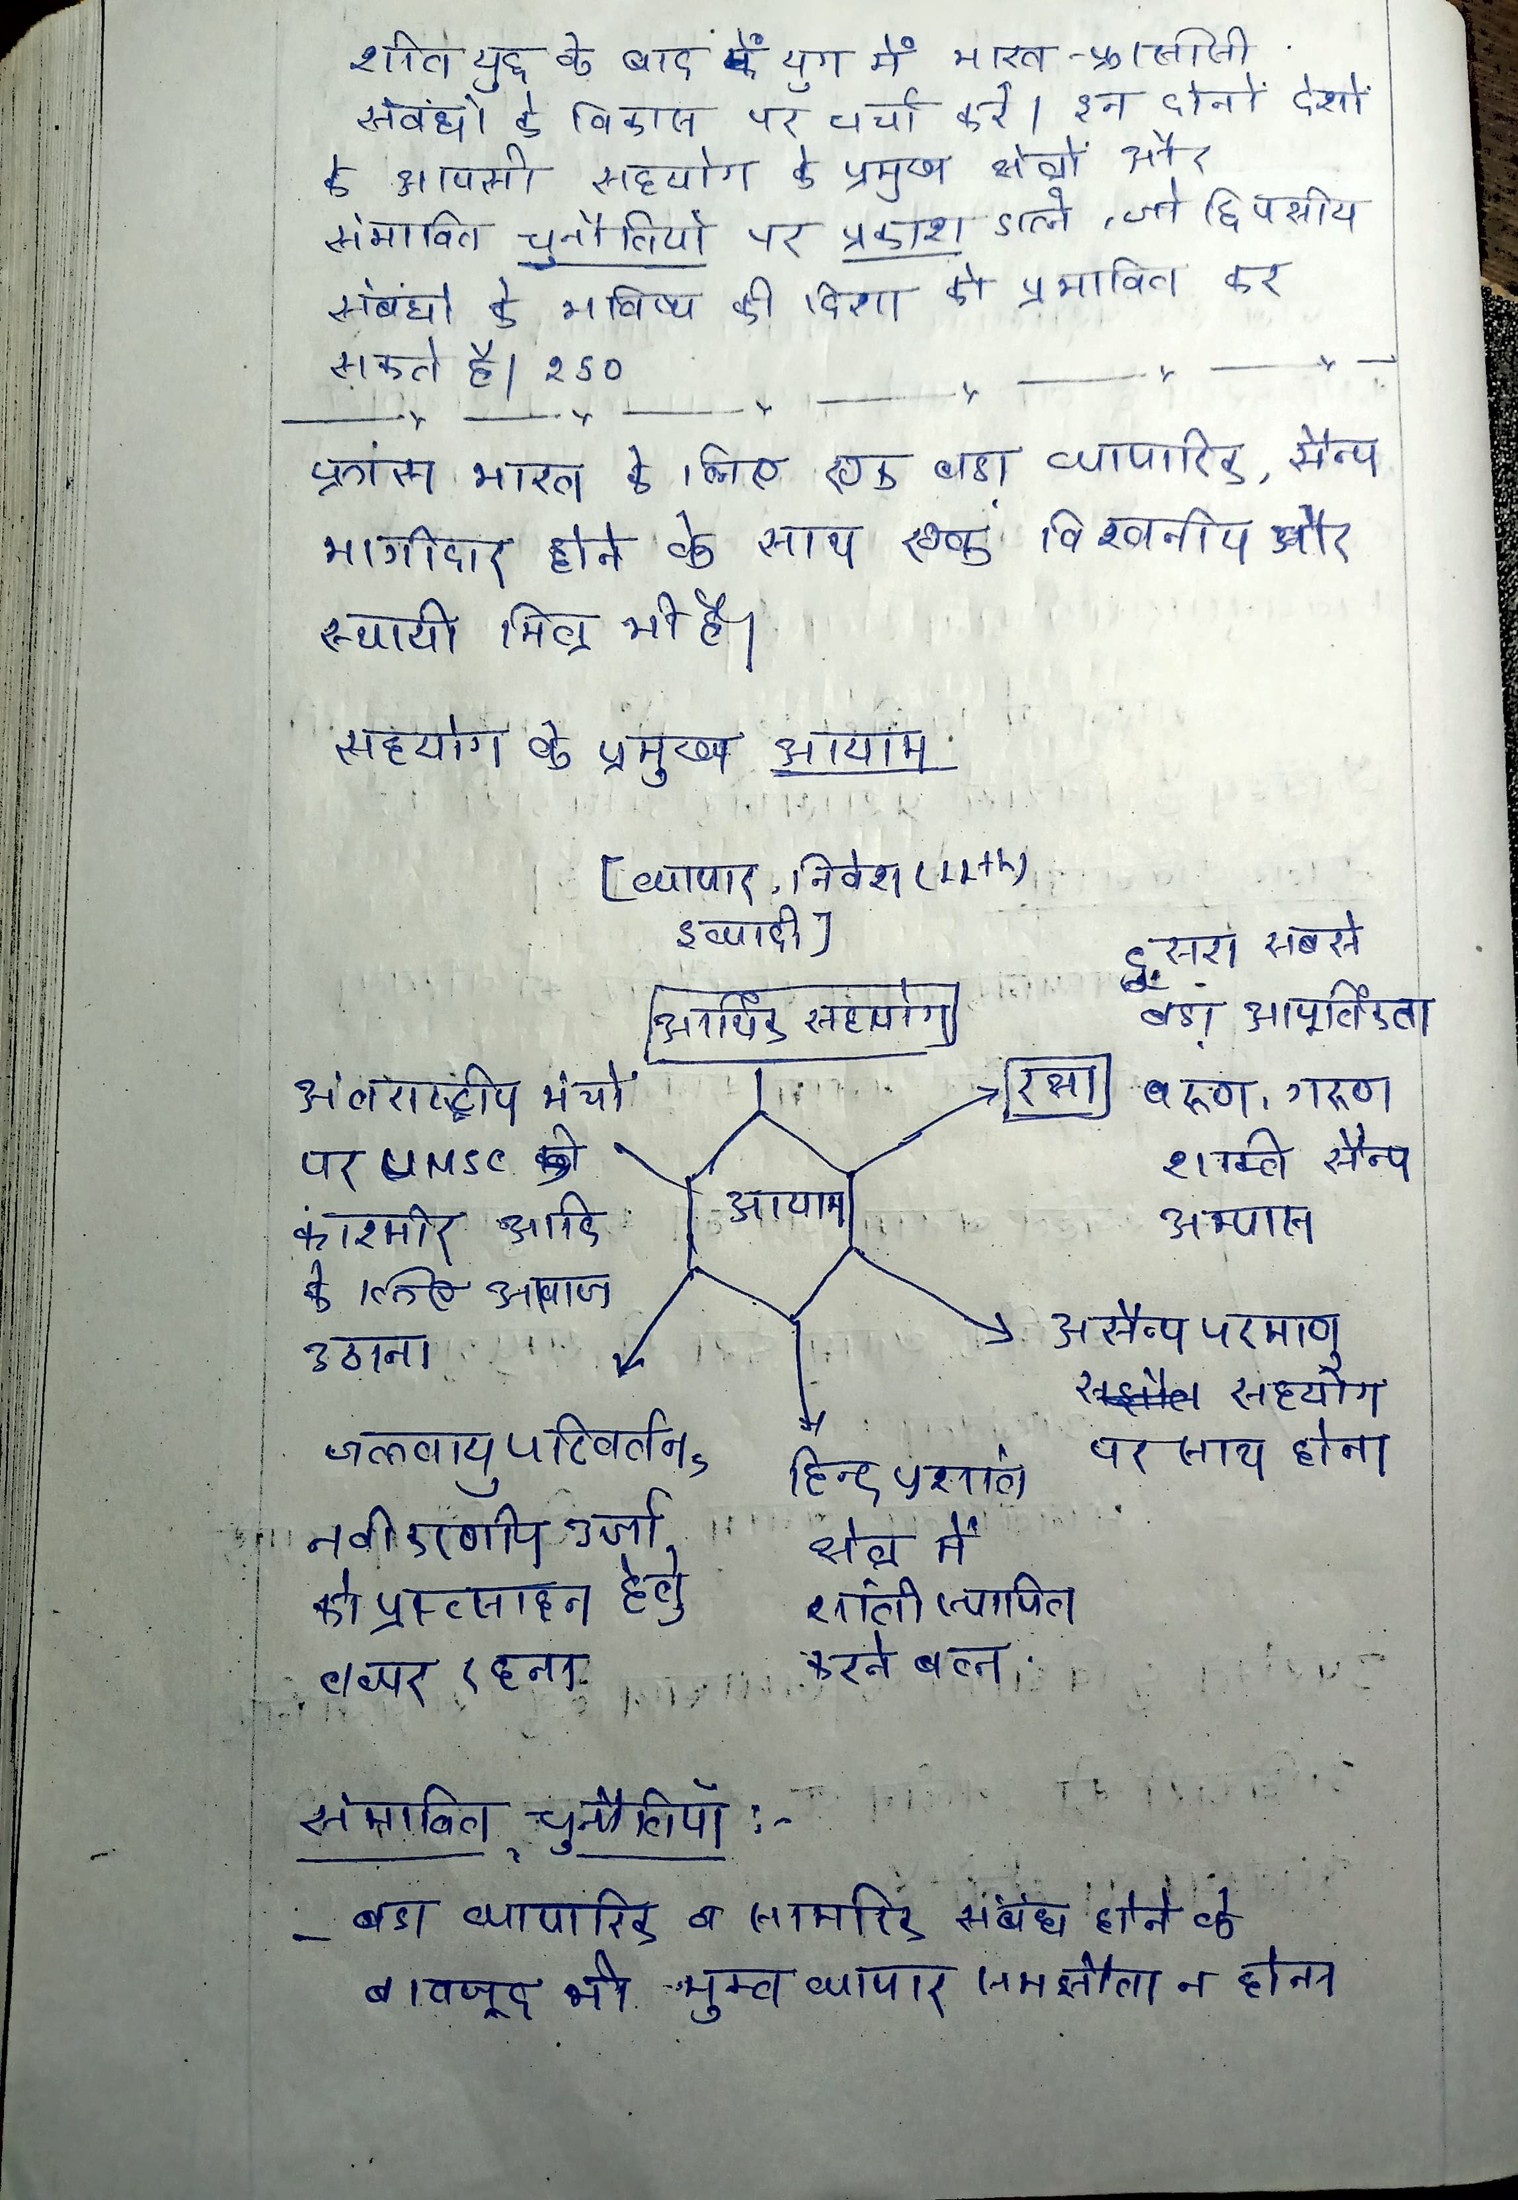 शीत युद्ध के बाद के युग में भारत-फ्रांसीसी
संबंधों के विकास पर चर्चा करें। इन दोनों देशों
के आपसी सहयोग के प्रमुख क्षेत्रों और
संभावित चुनौतियों पर प्रकाश डाले, जो द्विपक्षीय
संबंधों के भविष्य की दिशा को प्रभावित कर
सकते है। 250
फ्रांस भारत के लिए एक बडा़ व्यापारिक, सैन्य
भागीदार होने के साथ एक विश्वनीय और
स्थायी मित्र भी है।
सहयोग के प्रमुख आयाम
[व्यापार, निवेश (11th)
इत्यादी]
आर्थिक सहयोग
दुसरा सबसे
बडा़ आपूर्तिकता
रक्षा
वरूण, गरूण
शक्ति सैन्य
अभ्यास
अंतराष्ट्रीय मंचों
पर UNSC को
काश्मीर आदि
के लिए आवाज
उठाना
आयाम
असैन्य परमाणु
सहयोग
पर साथ होना
जलवायु परिवर्तन,
नवीकरणीय उर्जा
को प्रोत्साहन हेतु
तत्पर रहना
हिन्द प्रशांत
क्षेत्र में
शांती स्थापित
करने वाल
संभावित चुनौतियाँ :-
- बडा व्यापारिक व सामरिक संबंध होने के
बावजूद भी मुक्त व्यापार समझौता न होना